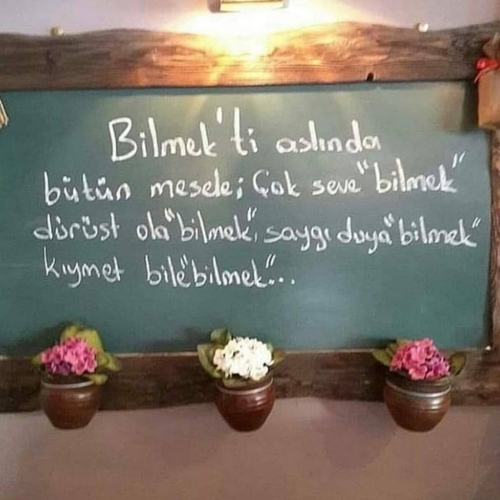 Bilmek'ti aslında
bütün mesele; Çok seve"bilmek"
dürüst ola"bilmek", saygı duya"bilmek"
kıymet bile"bilmek"...